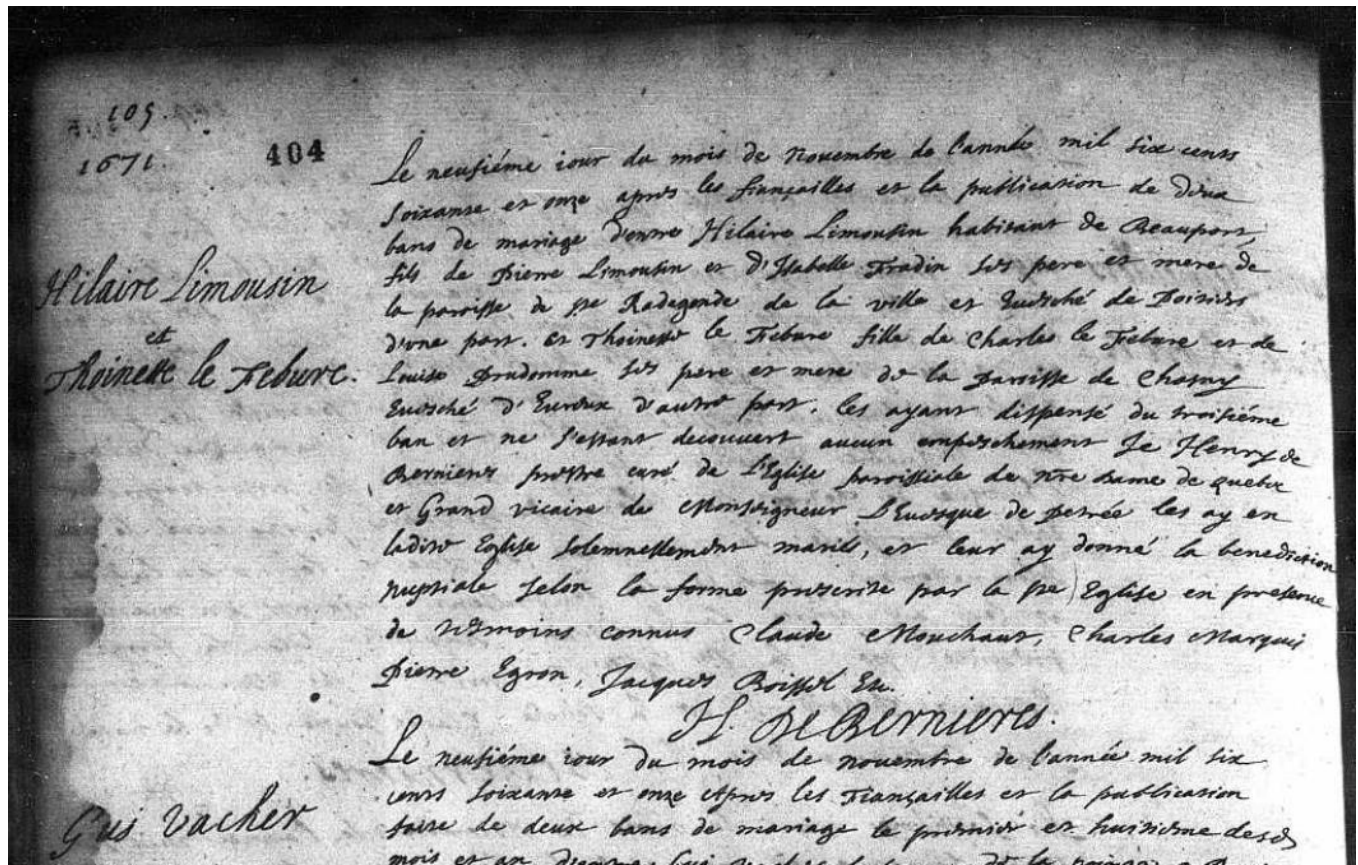 105.
1671.
404
Hilaire Limousin
et
Thoinette le Febure.
Le neufiéme iour du mois de Novembre de l'année mil six cents
soixante et onze apres les fiançailles et la publication de deux
bans de mariage d'entre Hilaire Limousin habitant de Beauport,
fils de Pierre Limousin et d'Isabelle Fradin ses pere et mere de
la paroisse de Ste Radegonde de la ville et Euesché de Poitiers
d'vne part. et Thoinette le Febure fille de Charles le Febure et de
Louise Prudomme ses pere et mere de la Paroisse de Charny
Euesché d'Eureux d'autre part. les ayant dispensé du troisiéme
ban et ne s'estant decouvert aucun empeschement Je Henry de
Bernieres prestre curé de l'Eglise paroissiale de nre Dame de quebec
et Grand vicaire de Monseigneur l'Euesque de Petrée les ay en
ladite Eglise solemnellement mariés, et leur ay donné la benediction
nuptiale selon la forme prescrite par la Ste Eglise en presence
de tesmoins connus Claude Mouchaut, Charles Marquis
Pierre Egron, Jacques Boissel Etc.
H. De Bernieres.
Gui Vacher
Le neufiéme iour du mois de novembre de l'année mil six
cents soixante et onze Apres les Fiançailles et la publication
faite de deux bans de mariage le premier et huitieme desd
mois et an d'entre Gui Vacher